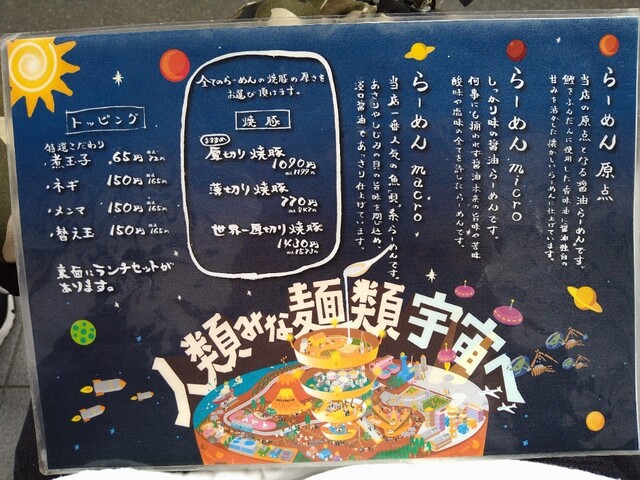 らーめん 原点
当店の原点となる醤油らーめんです。
鰹をふんだんに使用した香味油に醤油独自の
甘みを活かした懐かしいらーめんに仕上げています。
らーめん micro
しっかり味の醤油らーめんです。
何事にも捕われず醤油本来の旨味や苦味
酸味や塩味の全てを許したらーめんです。
らーめん macro
当店一番人気の魚貝系らーめんです。
あさりやしじみの貝の旨味を閉じ込め、
淡口醤油であっさり仕上げています。
全てのらーめんの焼豚の厚さを
お選び頂けます。
焼豚
おすすめ
厚切り焼豚
1090円
税込1199円
薄切り焼豚
770円
税込847円
世界一厚切り焼豚
1430円
税込1573円
トッピング
煮玉子 65円 税込72円
ネギ 150円 税込165円
メンマ 150円 税込165円
替え玉 150円 税込165円
裏面にランチセットが
あります。
人類みな麺類宇宙へ